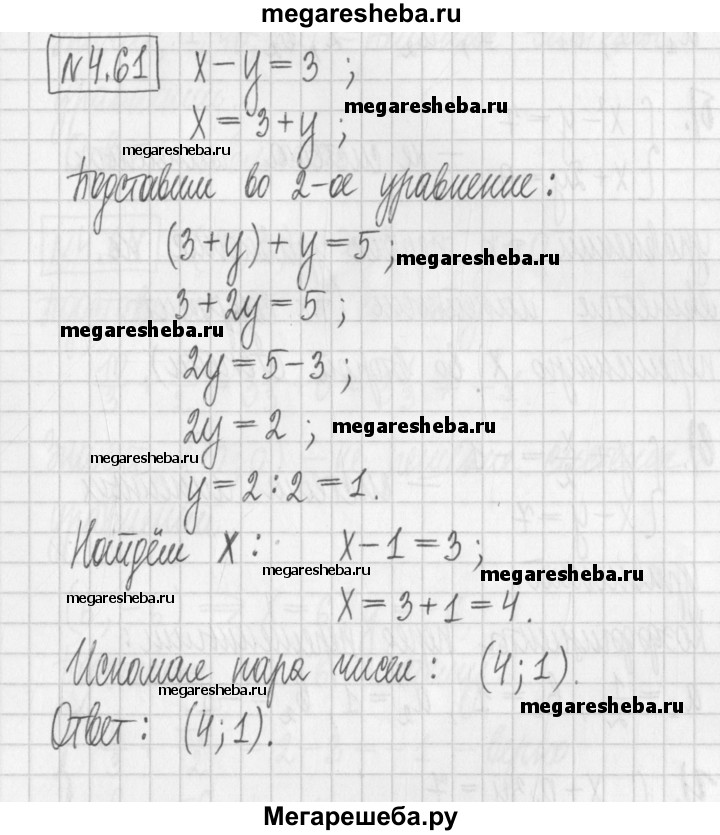 megaresheba.ru
№4.61 x-y=3 ;
megaresheba.ru
x=3+y ;
megaresheba.ru
Подставим во 2-ое уравнение:
(3+y)+y=5 ;
megaresheba.ru
3+2y=5 ;
megaresheba.ru
2y=5-3 ;
2y=2 ;
megaresheba.ru
megaresheba.ru
y=2:2=1.
Найдём x: x-1=3 ;
megaresheba.ru
megaresheba.ru
megaresheba.ru
x=3+1=4.
Искомая пара чисел: (4;1).
megaresheba.ru
megaresheba.ru
Ответ: (4;1).
Мегарешеба.ру